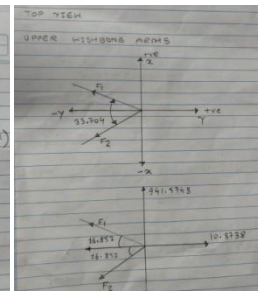 TOP VIEW
UPPER WISHBONE ARMS
+ve
x
F1
-y
33.704
+ve
Y
F2
-x
941.5748
F1
16.852
10.8738
16.852
F2